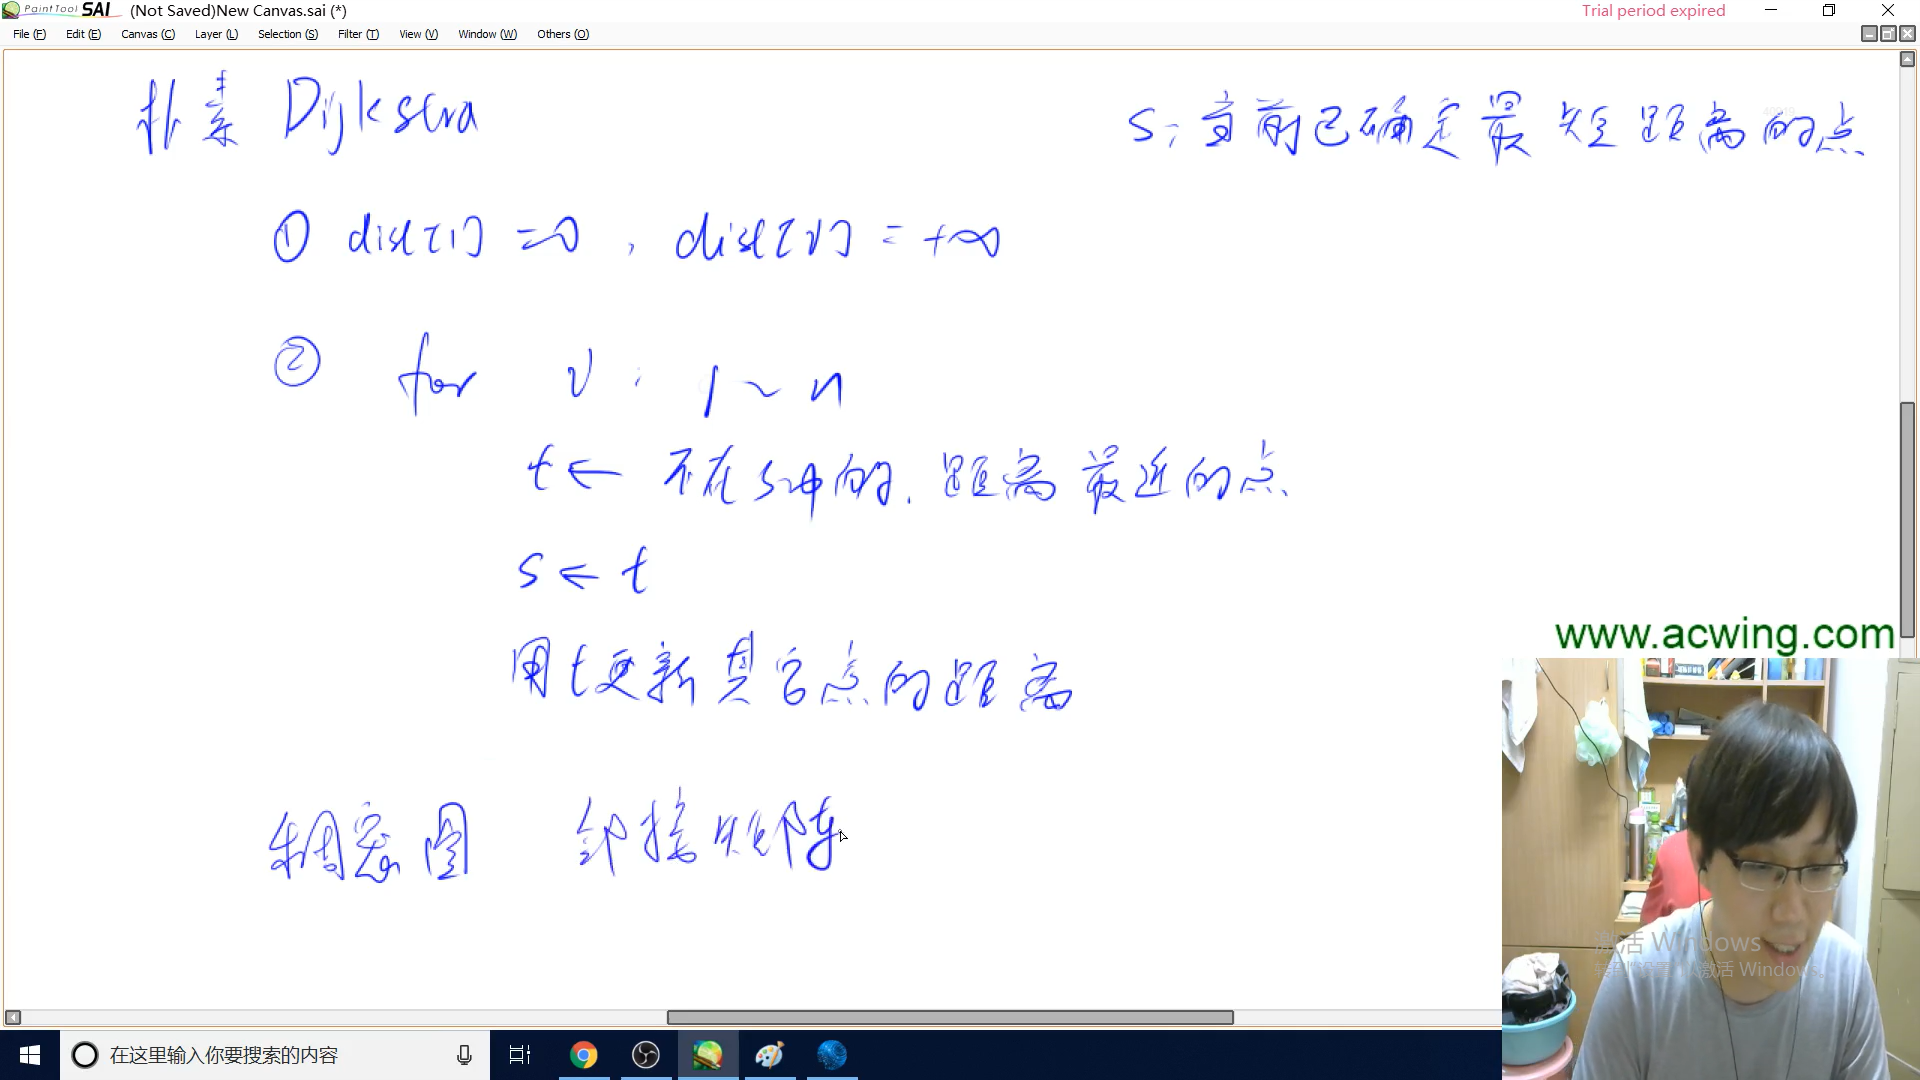 PaintTool SAI (Not Saved)New Canvas.sai (*)
Trial period expired
File (F) Edit (E) Canvas (C) Layer (L) Selection (S) Filter (T) View (V) Window (W) Others (O)
朴素 Dijkstra
s: 当前已确定最短距离的点
① dist[1] = 0, dist[v] = +∞
② for v: 1 ~ n
t ← 不在s中的, 距离最近的点
s ← t
用t更新其它点的距离
稠密图 邻接矩阵
www.acwing.com
激活 Windows
转到"设置"以激活 Windows。
在这里输入你要搜索的内容